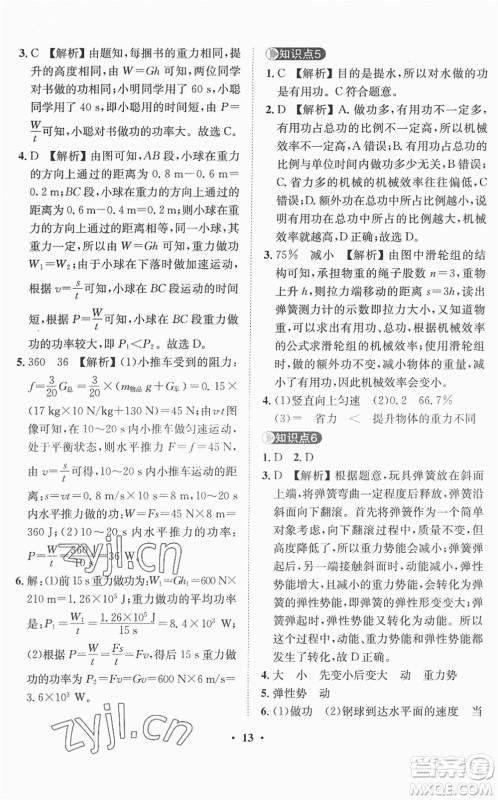 3. C 【解析】由题知，每捆书的重力相同，提
升的高度相同，由 W=Gh 可知，两位同学
对书做的功相同。小明用了 60 s，小聪用
了 40 s，即小聪用的时间少，由 P=
W/t 可知，小聪对书做功的功率大。故选 C。
4. D 【解析】由图可知，AB 段，小球在重力
的方向上通过的距离为 0.8 m－0.6 m=
0.2 m；BC 段，小球在重力的方向上通过的
距离为 0.6 m－0.4 m=0.2 m，即小球在重
力的方向上通过的距离相同，由 W=Gh
可知，在这两段过程中，小球的重力做功
W₁=W₂；因为小球在下落时做加速运动，
根据 v=s/t 可知，小球在 BC 段运动的时间
短；根据 P=W/t 可知，小球在 BC 段重力做
功的功率较大，即 P₁<P₂。故选 D。
5. 360 36 【解析】(1)小推车受到的阻力：
f=3/20 G总=3/20×(m物品g+G车)=0.15×
(17 kg×10 N/kg+130 N)=45 N；由图乙
可知，10～20 s 内小推车做匀速直线运动，
所以，10～20 s 内水平推力：F=f=45 N；
(2)10～20 s 内小推车运动的距离：
s=vt=0.8 m/s×10 s=8 m；10～20 s 内
水平推力做的功：W=Fs=45 N×8 m=
360 J；10～20 s 内水平推力的功率：
P=W/t=360 J/10 s=36 W。
6. 解：(1)前 15 s 重力做功 W₁=Gh₁=600 N×
210 m=1.26×10⁵ J；重力做功的平均功率
是：P₁=W₁/t=1.26×10⁵ J/15 s=8.4×10³ W；
(2)根据 P=W/t=Fs/t=Fv=600 N×6 m/s=
3.6×10³ W。
知识点5
1. C 【解析】目的是提水，所以对水做的功
是有用功。C 符合题意。
2. D 【解析】A. 做功多，有用功不一定多，
有用功占总功的比例不一定大，机械效率
不一定高，A 错误；B. 功率大，有用功占总
功的比例不一定大，机械效率不一定高，功
率与单位时间内做功多少有关，B 错误；
C. 省力多的机械的机械效率不一定高，C
错误；D. 有用功占总功的比例大的机械，
机械效率高，D 正确。故选 D。
3. 75% 减小 【解析】由图中滑轮组的结
构可知，承担物重的绳子股数 n=3，物体
升高 h 时，拉力移动的距离 s=3h，图中的
弹簧测力计的示数即为拉力大小，由机械
效率的公式可求得机械效率；由机械效率
的公式求滑轮组的机械效率；当物重减小
时，做的额外功不变，减小物体的重力，做
的有用功减小，因此机械效率减小。
4. (1)竖直向上匀速 (2)0.2 66.7%
(3)＝ 省力 < 提升物体的重力不同
知识点6
1. D 2. D
3. D 【解析】根据题意，玩具弹簧放在斜面
上端，将弹簧弯曲后，开始沿斜面“一个斛
斗”式向下翻滚。可以将整个弹簧作为研
究对象来看，向下翻滚的过程中，高度降
低，质量不变，重力势能会减小，下端面接
触斜面后，上端面抬起、翻转时，弹簧被拉
开，当上端面接触斜面时，弹簧会收缩，因
此，减小的重力势能，会转化为弹簧的弹性
势能，即弹簧的弹性势能变大，弹簧的重力
势能、动能以及弹簧自身的弹性势能都发
生了转化。D 正确。故选 D。
4. 大 小 先变小后变大 动 重力势
5. 弹性势 动
6. (1)做功 (2)钢球到达水平面的速度 当
• 13 •
zyjl.cn
zyjl.cn
作业精灵
答案圈
MXQE.COM